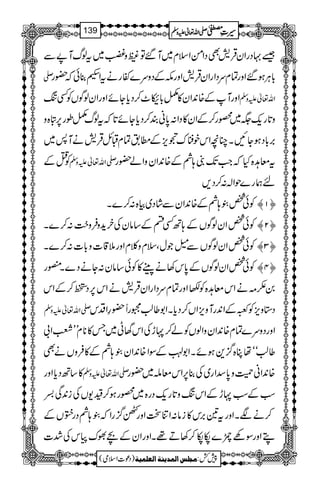 سیرتِ مصطفی صلی اللہ تعالیٰ علیہ وسلم 139
جیسے بہادران قریش بھی دامن اسلام میں آ گئے تو غیظ و غضب میں یہ لوگ آپے سے
باہر ہو گئے اور تمام سرداران قریش اور مکہ کے دوسرے کفار نے یہ اسکیم بنائی کہ حضور صلی
اللہ تعالیٰ علیہ وسلم اور آپ کے خاندان کا مکمل بائیکاٹ کردیا جائے اور ان لوگوں کو کسی تنگ
و تاریک جگہ میں محصور کرکے ان کا دانہ پانی بند کردیا جائے تا کہ یہ لوگ مکمل طور پر تباہ و
برباد ہو جائیں۔ چنانچہ اس خوفناک تجویز کے مطابق تمام قبائل قریش نے آپس میں
یہ معاہدہ کیا کہ جب تک بنی ہاشم کے خاندان والے حضور صلی اللہ تعالیٰ علیہ وسلم کو قتل کے
لئے ہمارے حوالہ نہ کردیں
﴿۱﴾ کوئی شخص بنو ہاشم کے خاندان سے شادی بیاہ نہ کرے۔
﴿۲﴾ کوئی شخص ان لوگوں کے ہاتھ کسی قسم کے سامان کی خرید و فروخت نہ کرے۔
﴿۳﴾ کوئی شخص ان لوگوں سے میل جول، سلام و کلام اور ملاقات و بات نہ کرے۔
﴿۴﴾ کوئی شخص ان لوگوں کے پاس کھانے پینے کا کوئی سامان نہ جانے دے۔ منصور
بن عکرمہ نے اس معاہدہ کو لکھا اور تمام سرداران قریش نے اس پر دستخط کر کے اس
دستاویز کو کعبہ کے اندر آویزاں کردیا۔ ابو طالب مجبوراً حضور اقدس صلی اللہ تعالیٰ علیہ وسلم
اور دوسرے تمام خاندان والوں کو لے کر پہاڑ کی اس گھاٹی میں جس کا نام ’’شعب ابی
طالب‘‘ تھا پناہ گزین ہوئے۔ ابولہب کے سوا خاندان بنو ہاشم کے کافروں نے بھی
خاندانی حمیت و پاسداری کی بنا پر اس معاملہ میں حضور صلی اللہ تعالیٰ علیہ وسلم کا ساتھ دیا اور
سب کے سب پہاڑ کے اس تنگ و تاریک درہ میں محصور ہو کر قیدیوں کی زندگی بسر
کرنے لگے۔ اور یہ تین برس کا زمانہ اتنا سخت اور کٹھن گزرا کہ بنو ہاشم درختوں کے
پتے اور سوکھے چمڑے پکا پکا کر کھاتے تھے۔ اور ان کے بچے بھوک پیاس کی شدت
پیش کش: مجلس المدینۃ العلمیۃ (دعوتِ اسلامی)